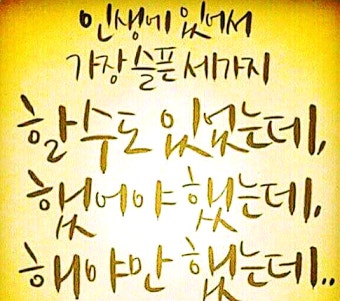 인생에 있어서
가장 슬픈 세가지
할 수도 있었는데,
했어야 했는데,
해야만 했는데..